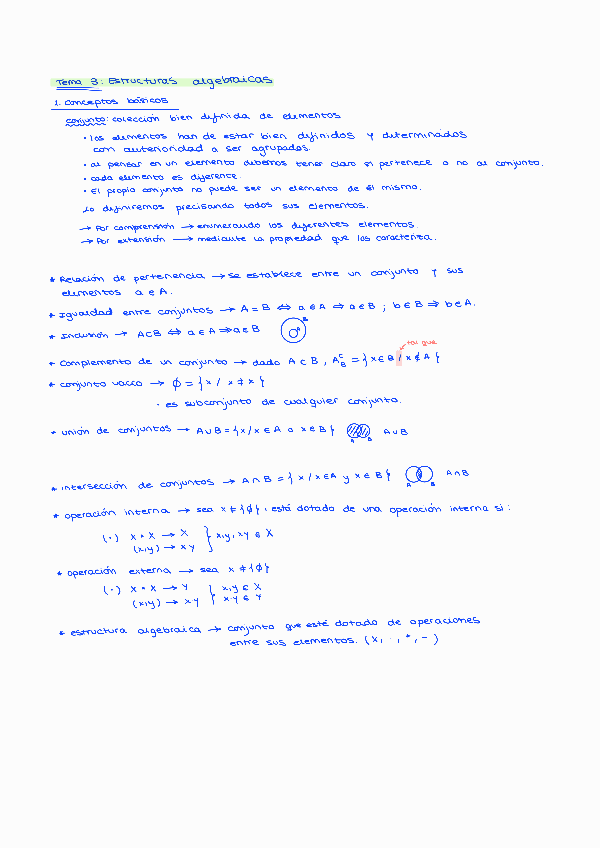 Tema 3: Estructuras algebraicas
1. Conceptos básicos
Conjunto: colección bien definida de elementos
· los elementos han de estar bien definidos y determinados
con anterioridad a ser agrupados.
· al pensar en un elemento debemos tener claro si pertenece o no al conjunto.
· cada elemento es diferente.
· El propio conjunto no puede ser un elemento de él mismo.
Lo definiremos precisando todos sus elementos.
→ Por comprensión → enumerando los diferentes elementos.
→ Por extensión → mediante la propiedad que los caracteriza.
* Relación de pertenencia → se establece entre un conjunto y sus
elementos a ∈ A.
* Igualdad entre conjuntos → A = B ⇔ a ∈ A ⇒ a ∈ B ; b ∈ B ⇒ b ∈ A.
* Inclusión → A⊂B ⇔ a ∈ A ⇒ a ∈ B B
tal que
* Complemento de un conjunto → dado A ⊂ B, A_B^C = {x ∈ B / x ∉ A}
* conjunto vacco → ϕ = {x / x ≠ x}
· es subconjunto de cualquier conjunto.
* unión de conjuntos → A∪B = {x/x ∈ A o x ∈ B} A B A∪B
* intersección de conjuntos → A∩B = {x/x∈A y x ∈ B} A B A∩B
* operación interna → sea x ≠ {ϕ}, está dotado de una operación interna si:
(·) X × X → X } x,y, xy ∈ X
(x,y) → xy
* operación externa → sea x ≠ {ϕ}
(·) X × X → Y } x,y ∈ X
(x,y) → xy x·y ∈ Y
* estructura algebraica → conjunto que esté dotado de operaciones
entre sus elementos. (X, ·, *, -)